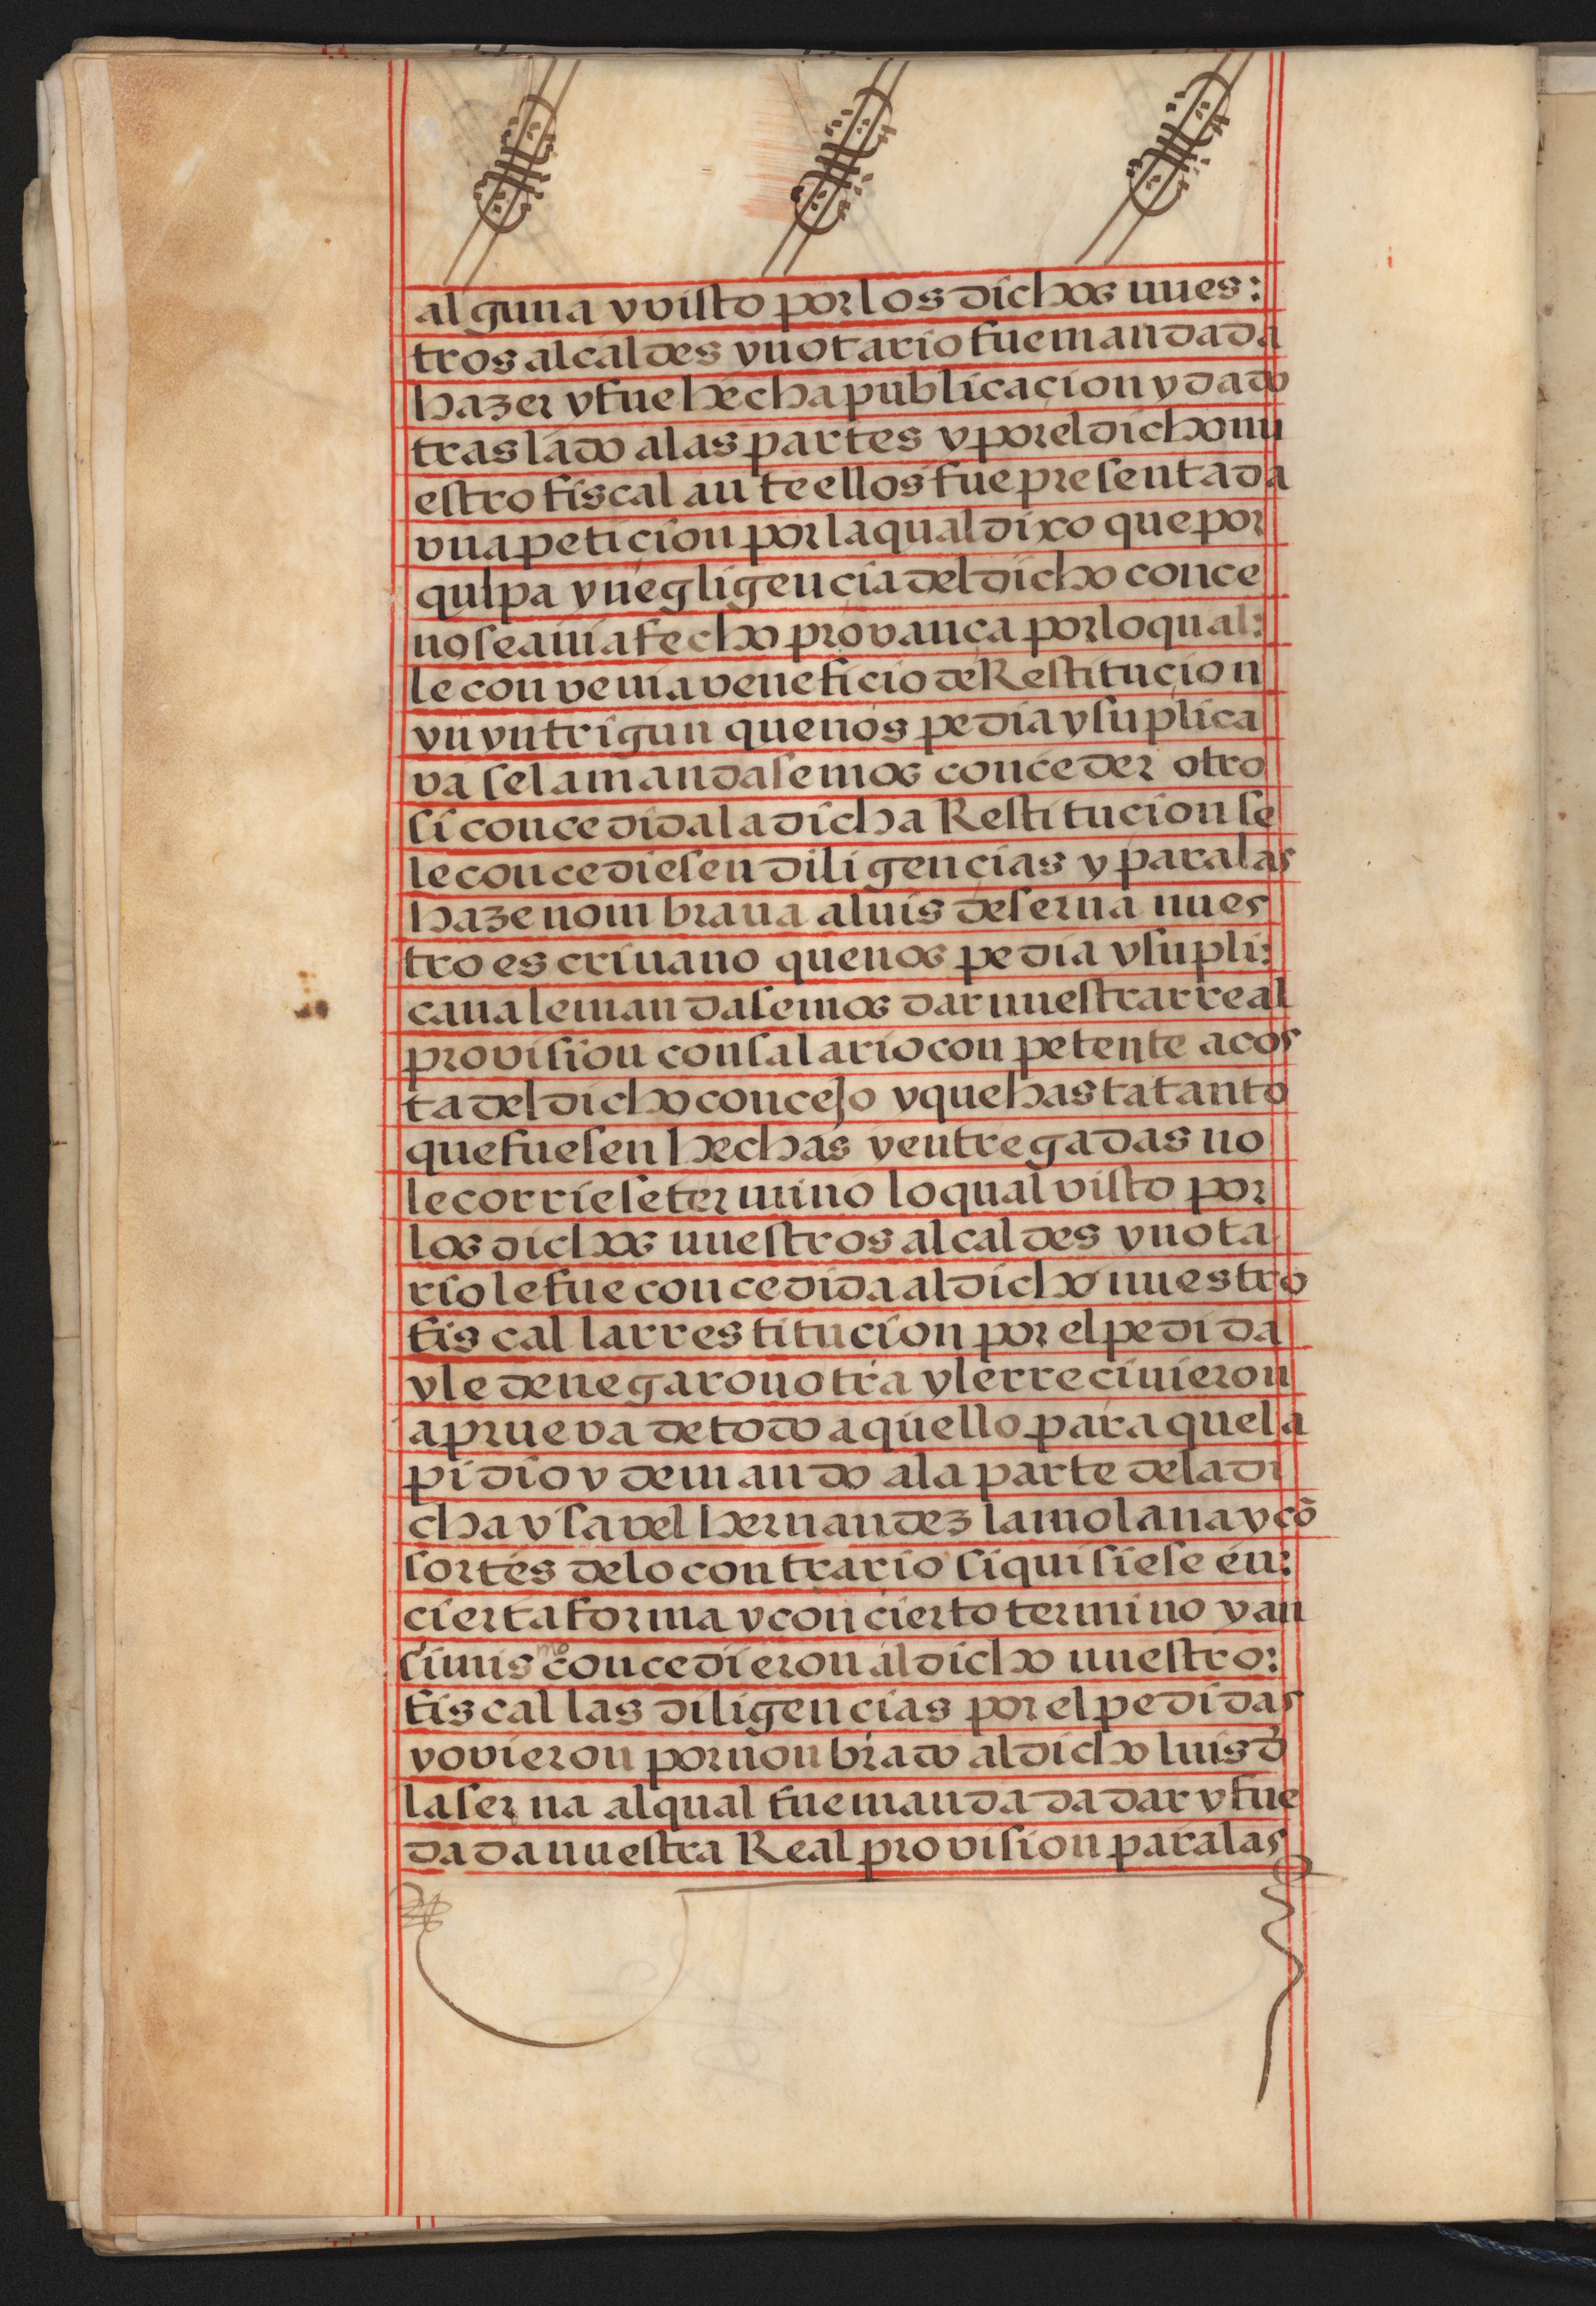 alguna y visto por los dichos nues:
tros alcaldes y notario fue mandada
hazer y fue hecha publicaçion y dado
traslado a las partes y por el dicho nu
estro fiscal ante ellos fue presentada
vna petiçion por la qual dixo que por
qulpa y negligençia del dicho conce
no se avia fecho provança por lo qual:
le convenia veneficio de Restituçion
yn yntrigun que nos pedia y suplica
va se la mandasemos conceder otro
si concedida la dicha Restitucion se
le concediesen diligençias y para las
haze nombraua a luis de serna nues
tro escriuano que nos pedia y supli:
caua le mandasemos dar nuestra rreal
provision con salario conpetente a cos
ta del dicho concejo y que hasta tanto
que fuesen hechas y entregadas no
le corriese termino lo qual visto por
los dichos nuestros alcaldes y nota
rio le fue concedida al dicho nuestro
fiscal la rrestitucion por el pedida
y le denegaron otra y le rreciuieron
a prueva de todo aquello para que la
pidio y demando a la parte de la di
cha ysavel hernandez la molana y cō
sortes de lo contrario si quisiese en:
cierta forma y con cierto termino y an
simismo concedieron al dicho nuestro:
fiscal las diligencias por el pedidas
y ovieron por nonbrado al dicho luis d
la serna al qual fue mandada dar y fue
dada nuestra Real provision para las